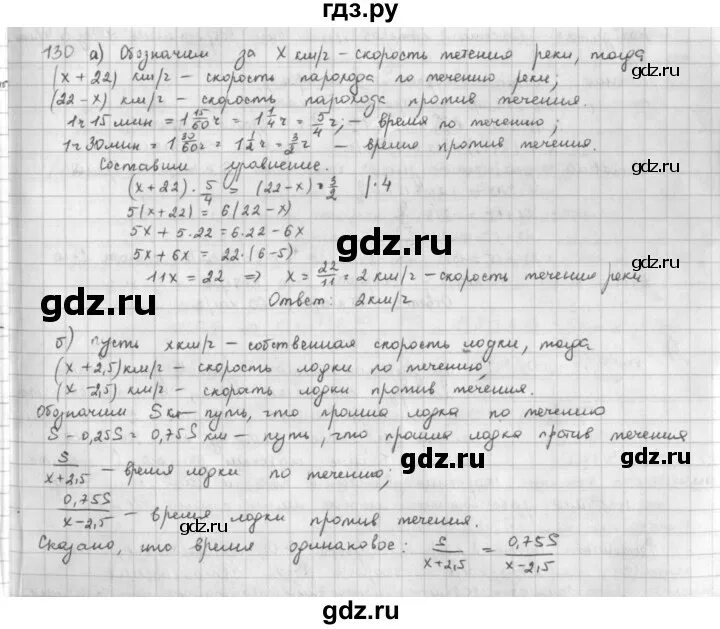 гдз.ру
130 а) Обозначим за X км/г – скорость течения реки, тогда
(x + 22) км/г – скорость парохода по течению реки;
(22 – x) км/г – скорость парохода против течения.
1ч 15 мин = 1 15/60 ч = 1 1/4 ч = 5/4 ч; – время по течению;
1ч 30 мин = 1 30/60 ч = 1 1/2 ч = 3/2 ч – время против течения.
Составим уравнение.
(x + 22) · 5/4 = (22 – x) · 3/2 | · 4
5(x + 22) = 6(22 – x)
5x + 5·22 = 6·22 – 6x
gdz.ru
5x + 6x = 22·(6–5)
11x = 22 => x = 22/11 = 2 км/г – скорость течения реки
gdz.ru
Ответ: 2 км/г
б) пусть x км/г – собственная скорость лодки, тогда
(x + 2,5) км/г – скорость лодки по течению,
(x – 2,5) км/г – скорость лодки против течения.
Обозначим S км – путь, что прошла лодка по течению
S – 0,25S = 0,75S км – путь, что прошла лодка против течения
gdz.ru
S/(x+2,5) – время лодки по течению;
0,75S/(x–2,5) – время лодки против течения.
gdz.ru
Сказано, что время одинаковое: S/(x+2,5) = 0,75S/(x–2,5)
gdz.ru